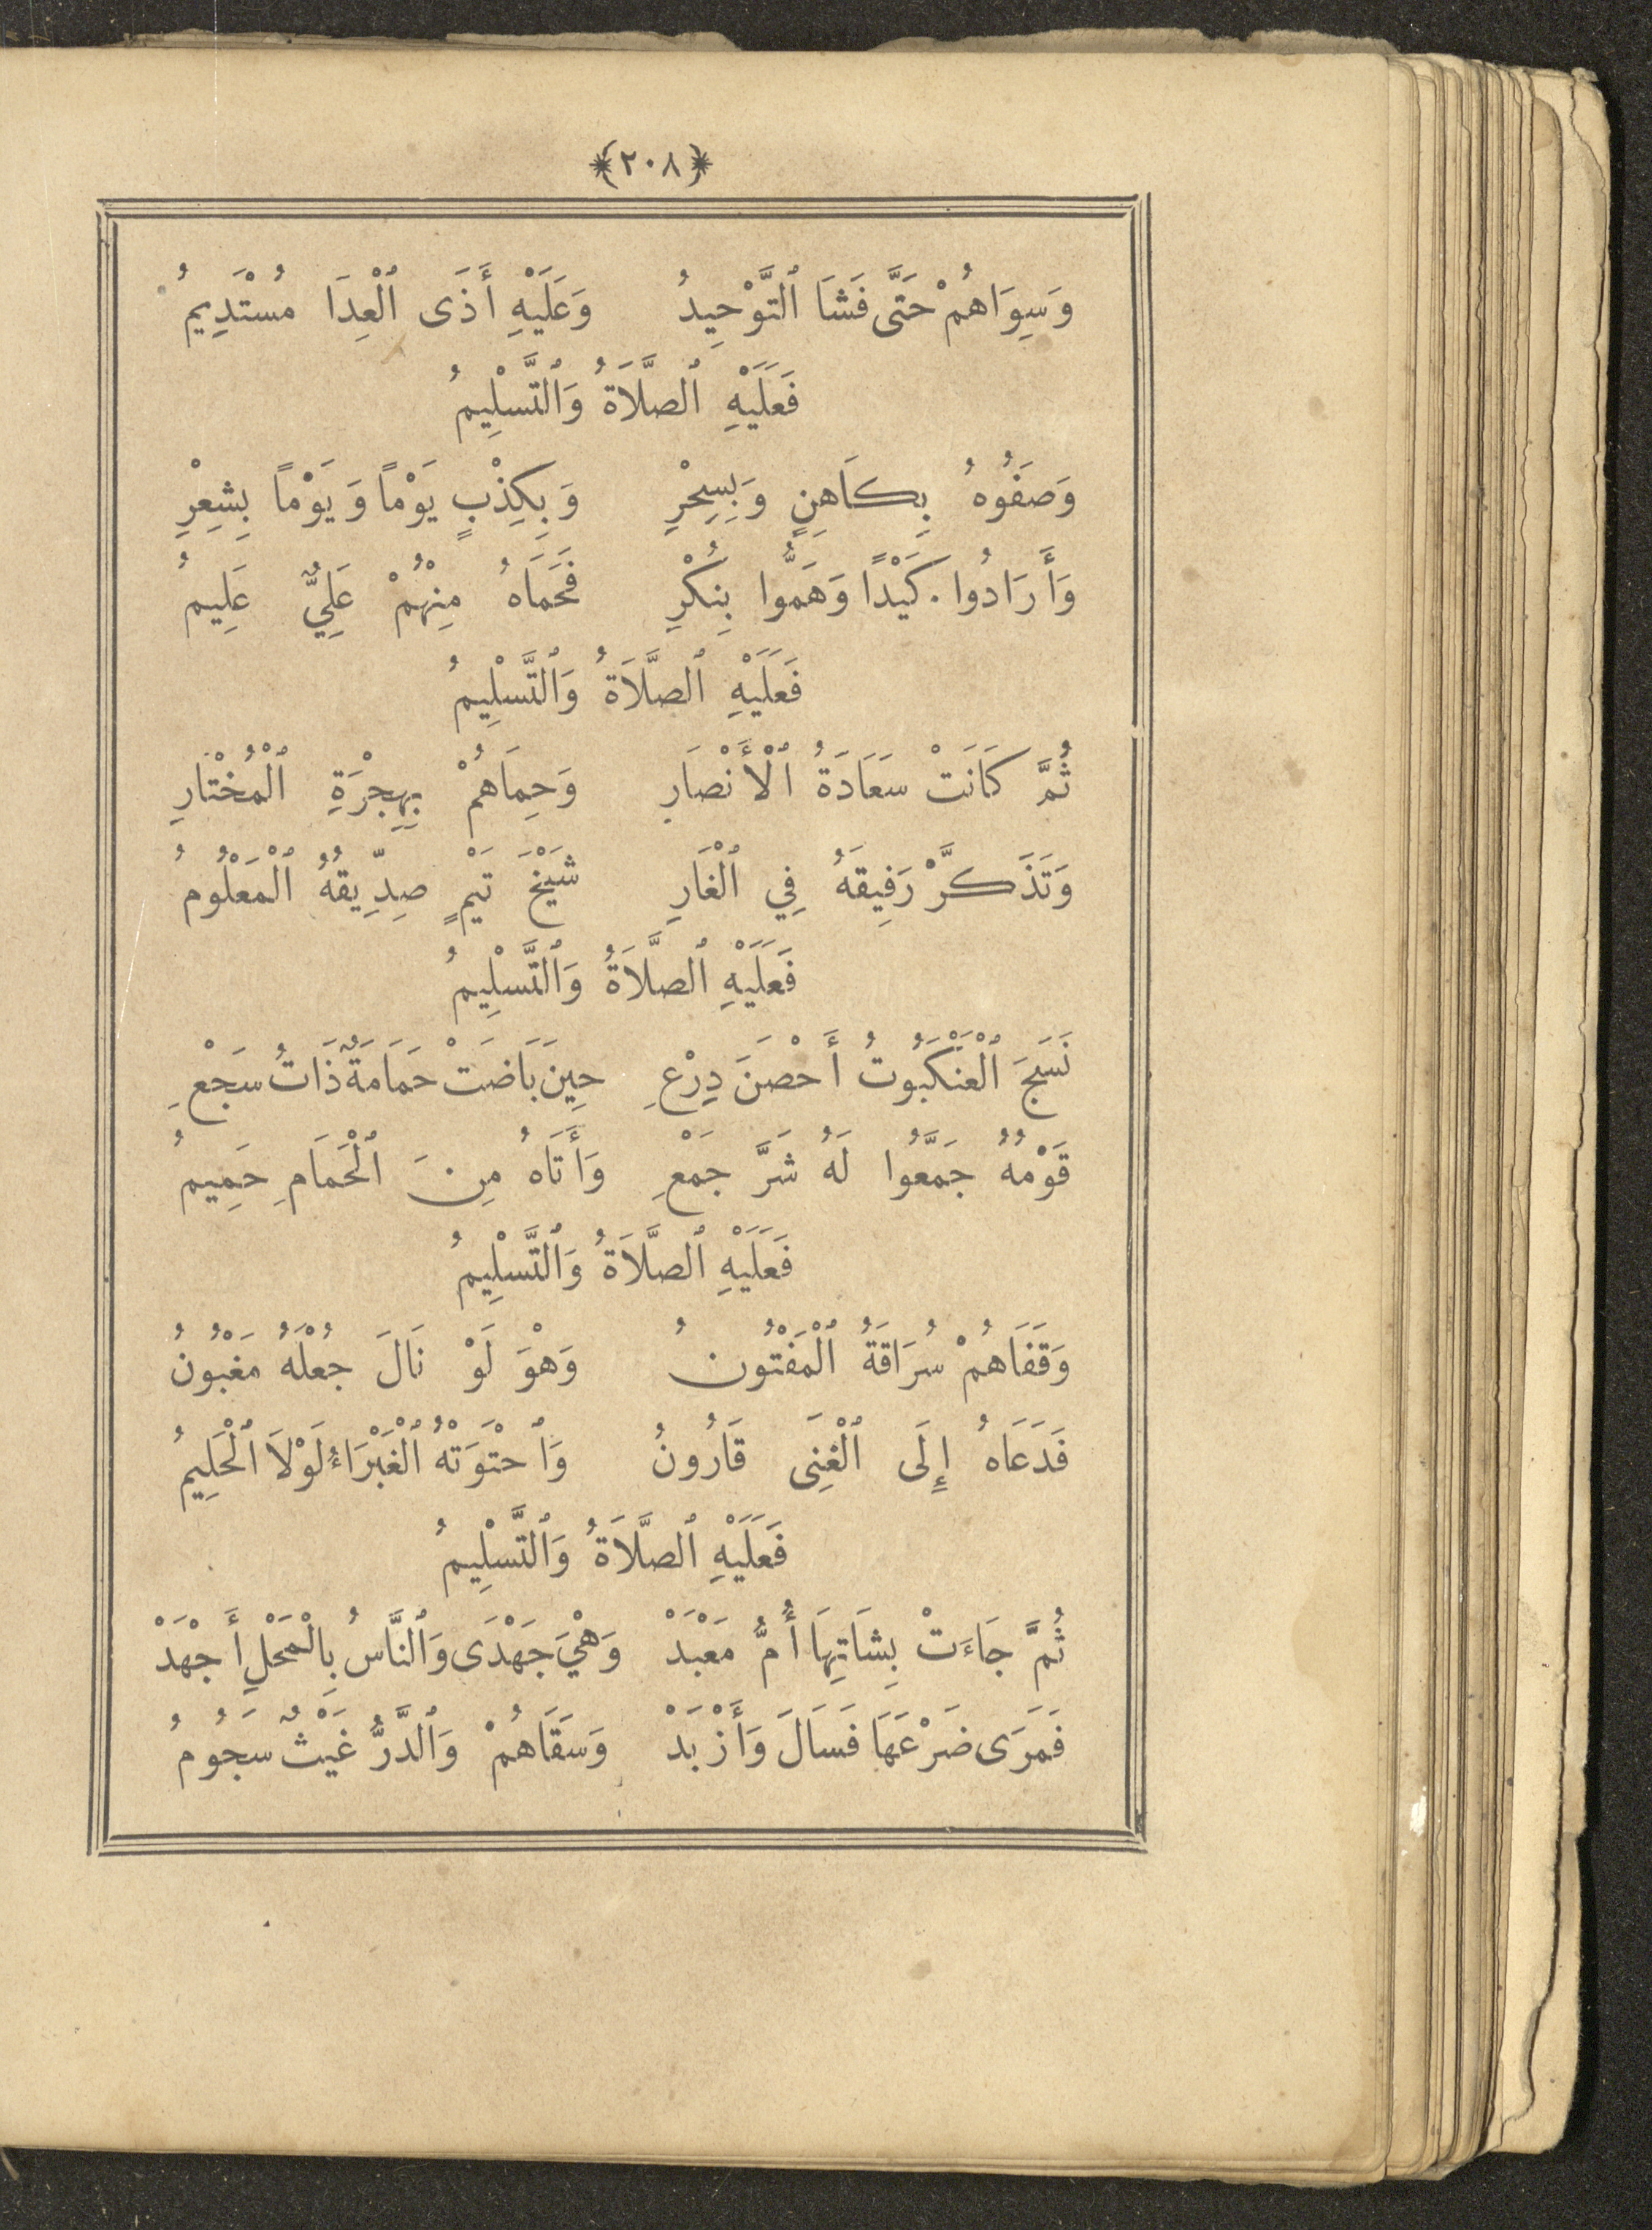 ﴿٢٠٨﴾
وَسِوَاهُمْ حَتَّى فَشَا ٱلتَّوْحِيدُ وَعَلَيْهِ أَذَى ٱلْعِدَا مُسْتَدِيمُ
فَعَلَيْهِ ٱلصَّلَاةُ وَٱلتَّسْلِيمُ
وَصَفُوهُ بِكَاهِنٍ وَبِسِحْرِ وَبِكِذْبٍ يَوْماً وَيَوْماً بِشِعِرْ
وَأَرَادُوا كَيْدًا وَهَمُّوا بِنُكْرِ فَحَمَاهُ مِنْهُمْ عَلِيٌّ عَلِيمُ
فَعَلَيْهِ ٱلصَّلَاةُ وَٱلتَّسْلِيمُ
ثُمَّ كَانَتْ سَعَادَةُ ٱلْأَنْصَارِ وَحِمَاهُمْ بِهِجْرَةِ ٱلْمُخْتَارِ
وَتَذَكَّرْ رَفِيقَهُ فِي ٱلْغَارِ شَيْخَ تَيْمٍ صِدِّيقُهُ ٱلْمَعْلُومُ
فَعَلَيْهِ ٱلصَّلَاةُ وَٱلتَّسْلِيمُ
نَسَجَ ٱلْعَنْكَبُوتُ أَحْصَنَ دِرْعِ حِينَ بَاضَتْ حَمَامَةٌ ذَاتُ سَجْعِ
قَوْمُهُ جَمَّعُوا لَهُ شَرَّ جَمْعِ وَأَتَاهُ مِنَ ٱلْحَمَامِ حَمِيمُ
فَعَلَيْهِ ٱلصَّلَاةُ وَٱلتَّسْلِيمُ
وَقَفَاهُمْ سُرَاقَةُ ٱلْمَفْتُونُ وَهْوَ لَوْ نَالَ جُعْلَهُ مَغْبُونُ
فَدَعَاهُ إِلَى ٱلْغِنَى قَارُونُ وَٱحْتَوَتْهُ ٱلْغَبْرَاءُ لَوْلَا ٱلْحَلِيمُ
فَعَلَيْهِ ٱلصَّلَاةُ وَٱلتَّسْلِيمُ
ثُمَّ جَاءَتْ بِشَاتِهَا أُمُّ مَعْبَدْ وَهْيَ جَهْدَى وَٱلنَّاسُ بِالْمَحْلِ أَجْهَدْ
فَمَرَى ضَرْعَهَا فَسَالَ وَأَزْبَدْ وَسَقَاهُمْ وَٱلدَّرُّ غَيْثٌ سَجُومُ